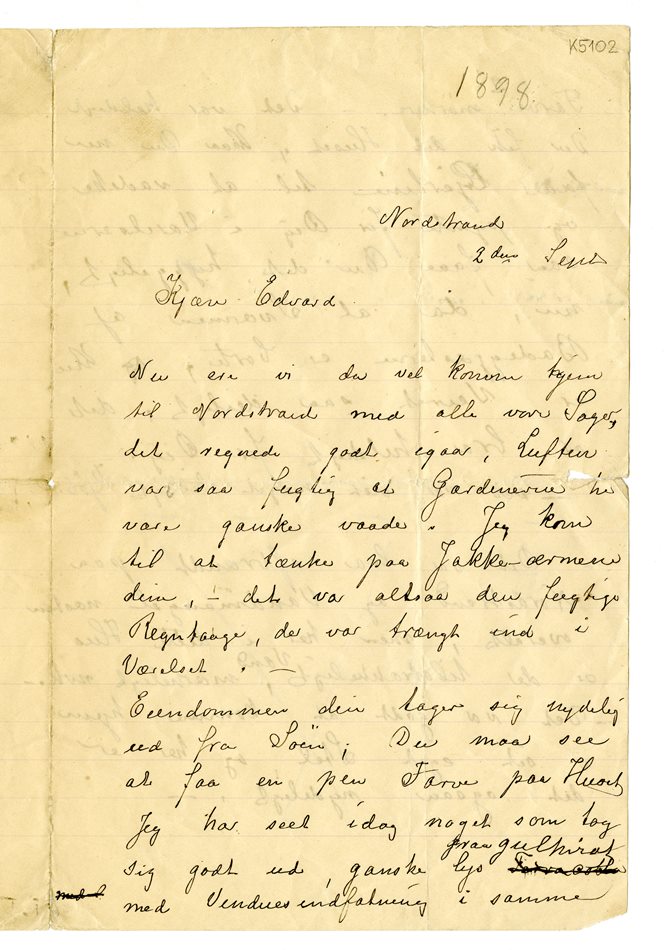 K5102
1898
Nordstrand
2den Sept
Kjære Edvard.
Nu ere vi da vel komne hjem
til Nordstrand med alle vore Sager,
det regnede godt igaar, Luften
var saa fugtig at Gardinerne
vare ganske vaade. Jeg kom
til at tænke paa Jakke-ærmene
dine, – det var altsaa den fugtige
Regntaage, der var trængt ind i
Værelset. –
Eiendommen din tager sig nydelig
ud fra Søen; Du maa see
at faa en pen Farve paa Huset
Jeg har seet idag noget som tog
graagulhvid
sig godt ud, ganske lys Terracotta
med Vinduesindfatning i samme